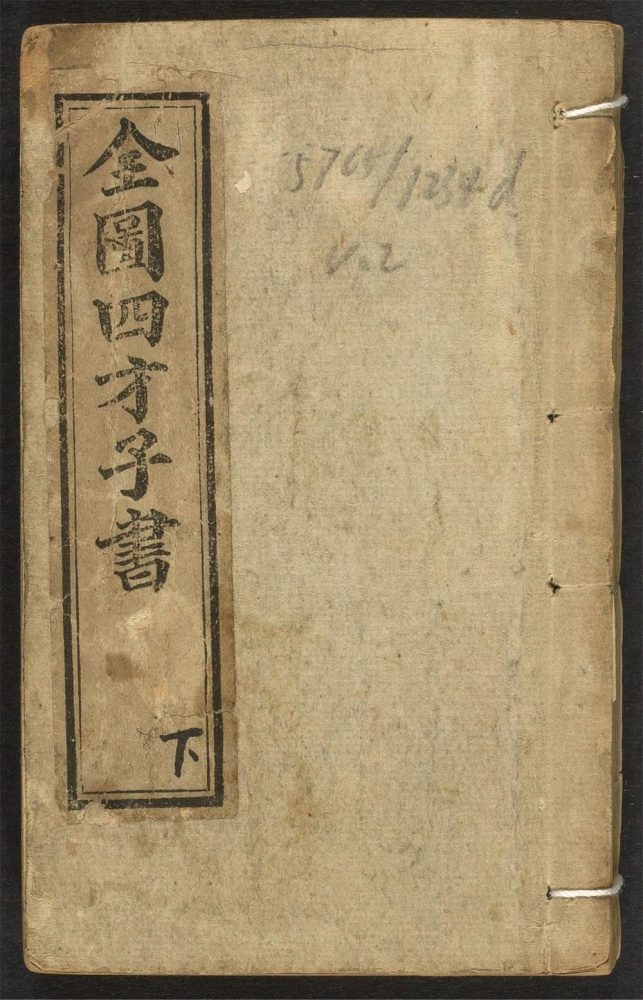 全圖四才子書
下
5765/1234d
V.2